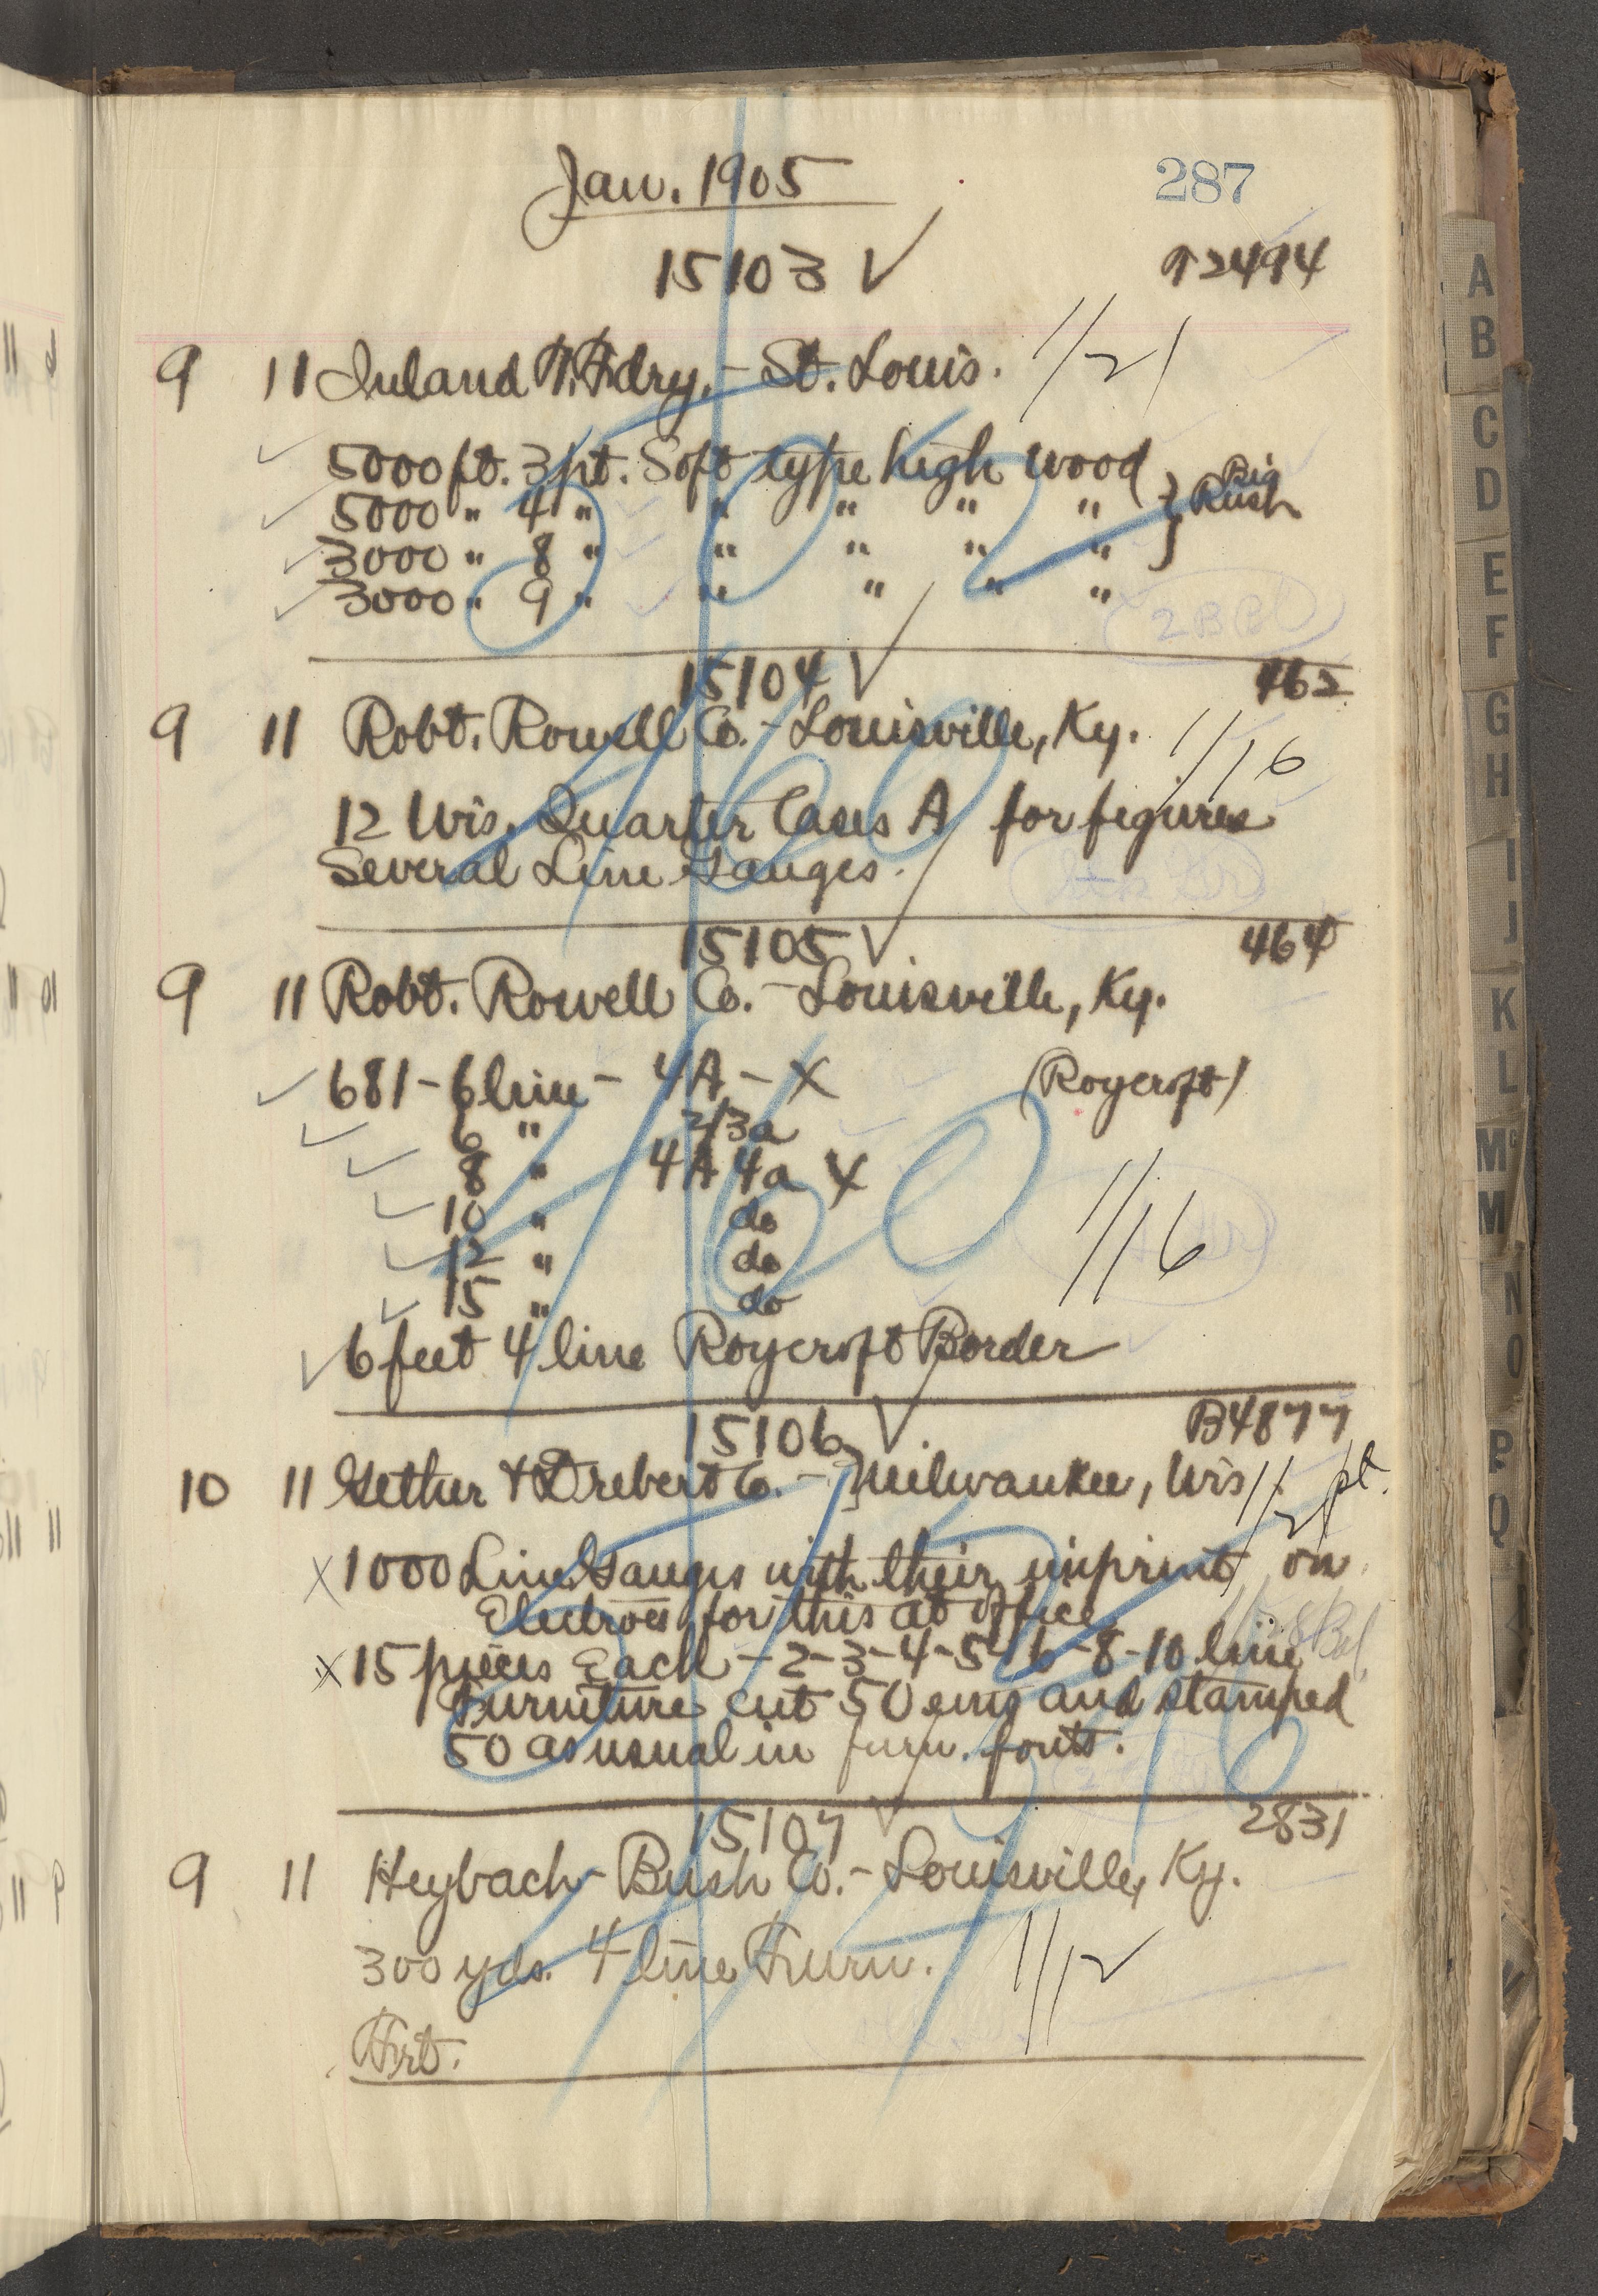 Jan. 1905
287
15103 ✓
92494
9 11 Inland T. Fdry. - St. Louis. 1/21
5000 ft. 3 pt. Soft type high wood
5000 " 4 " " " " " } Big Rush
3000 " 8 " " " " "
3000 " 9 " " " " "
2 BBl
15104 ✓
462
9 11 Robt. Rowell Co. - Louisville, Ky. 1/16
12 Wis. Quarter Cases A for figures
Several Line Gauges.
15105 ✓
464
9 11 Robt. Rowell Co. - Louisville, Ky.
681 - 6 line - 4A - X (Roycroft)
6 " 2/3a
8 " 4A 4a X
10 " do
12 " do 1/16
15 " do
6 feet 4 line Roycroft Border
15106 ✓
B4877
10 11 Gether & Drebert Co. - Milwaukee, Wis. pt.
X 1000 Line Gauges with their imprint on
Electros for this at office
X 15 pieces Each - 2-3-4-5-6-8-10 line
Furniture cut 50 ems and stamped
50 as usual in furn. fonts.
15107 ✓
2831
9 11 Heybach-Bush Co. - Louisville, Ky.
300 yds. 4 line Furn. 1/12
Frt.
A
B
C
D
E
F
G
H
I
J
K
L
Mc
M
N
O
P
Q